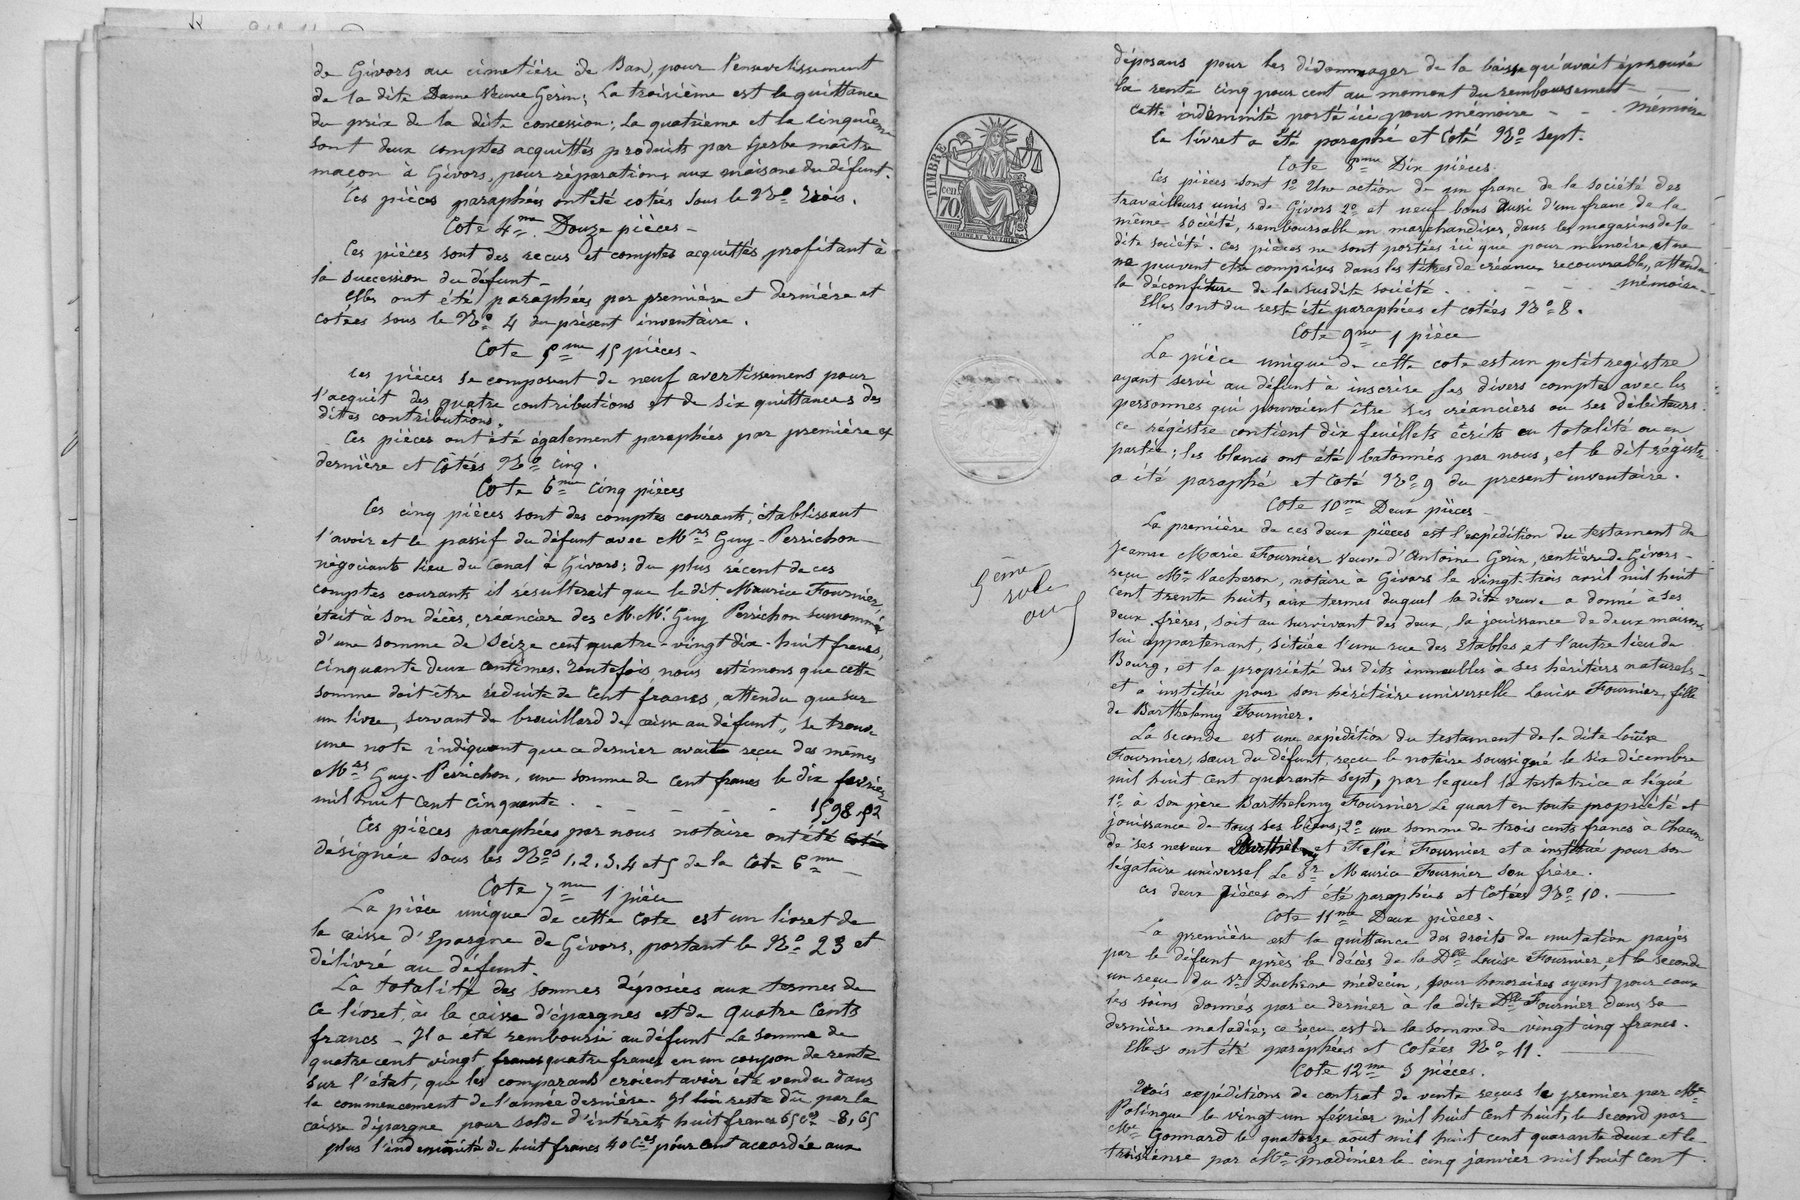 de Givors au cimetière de Ban, pour l'ensevelissement
de la dite Dame Veuve Gerin; La troisième est la quittance
du prix de la dite concession; La quatrième et la cinquième
sont deux comptes acquittés produits par Gerbe maître
maçon à Givors, pour réparations aux maisons du défunt.
Ces pièces paraphées ont été cotées sous le No trois.
Cote 4me Douze pièces -
Ces pièces sont des reçus et comptes acquittés profitant à
la succession du défunt -
Elles ont été paraphées par première et dernière et
cotées sous le No 4 du présent inventaire.
Cote 5me 15 pièces -
Ces pièces se composent de neuf avertissemens pour
l'acquit des quatre contributions et de six quittances des
dittes contributions.
Ces pièces ont été également paraphées par première et
dernière et Cotées No Cinq.
Cote 6me Cinq pièces
Ces cinq pièces sont des comptes courants, établissant
l'avoir et le passif du défunt avec Mrs Guy-Perrichon
négociants lieu du Canal à Givors; du plus récent de ces
comptes courants il résulterait que le dit Maurice Fournier
était à son décès, créancier des M.Mrs Guy Perrichon surnommés
d'une somme de Seize cent quatre-vingt dix-huit francs,
cinquante deux centimes. Toutefois nous estimons que cette
somme doit être réduite de Cent francs, attendu que sur
un livre, servant de brouillard de caisse au défunt, se trouve
une note indiquant que ce dernier avait reçu des mêmes
Mrs Guy-Perrichon, une somme de cent francs le dix fevrier
mil huit cent cinquante - - - - - 1598.52
Ces pièces paraphées par nous notaire ont été
désignée sous les Nos 1. 2. 3. 4 et 5 de la Cote 6me -
Cote 7me 1 pièce
La pièce unique de cette Cote est un livret de
la caisse d'Epargne de Givors, portant le No 23 et
délivré au défunt.
La totalité des sommes déposées aux termes de
ce livret, à la caisse d'épargnes est de Quatre Cents
francs - Il a été remboursé au défunt la somme de
quatre cent vingt francs quatre francs en un coupon de rente
sur l'état, que les comparants croient avoir été vendu dans
le commencement de l'année dernière. Il lui reste dû par la
caisse d'épargne pour solde d'intérêts huit francs 65 ces - 8,65
plus l'indemnité de huit francs 40 ces pour cent accordée aux
TIMBRE
cen
70
5eme
role
déposans pour les dédommager de la baisse qu'avait éprouvé
la rente cinq pour cent au moment du remboursement
cette indemnité porté ici pour mémoire - - Mémoire
Ce livret a été paraphé et Coté No Sept.
Cote 8me Dix pièces.
Ces pièces sont 1o Une action de un franc de la société des
travailleurs unis de Givors 2o et neuf bons Aussi d'un franc de la
même société, remboursable en marchandises, dans les magasins de la
dite société. Ces pièces ne sont portées ici que pour mémoire, et ne
ne peuvent etre comprises dans les titres de créances recouvrables, attendu
la déconfiture de la susdite société. - - mémoire -
Elles ont du reste été paraphées et cotées No 8.
Cote 9me 1 pièce
La pièce unique de cette cote est un petit registre
ayant servi au défunt à inscrire ses divers comptes avec les
personnes qui pouvaient être ses créanciers ou ses débiteurs.
ce registre contient dix feuillets écrits en totalité ou en
partie; les blancs ont été batonnés par nous, et le dit régistre
a été paraphé et Coté No 9 du present inventaire.
Cote 10me Deux pièces -
La première de ces deux pièces est l'expédition du testament de
Jeanne Marie Fournier veuve d'Antoine Gerin, rentière de Givors -
reçu Me Vacheron, notaire à Givors le vingt-trois avril mil huit
cent trente huit, aux termes duquel la dite veuve a donné à ses
deux frères, soit au survivant des deux, la jouissance de deux maisons
lui appartenant, située l'une rue des Etables, et l'autre lieu du
Bourg, et la propriété des dits immeubles à ses héritiers naturels -
et a institué pour son héritière universelle Louise Fournier, fille
de Barthelemy Fournier.
La seconde est une expédition du testament de la dite Louise
Fournier, sœur du défunt, reçu le notaire soussigné le six décembre
mil huit cent quarante sept, par lequel la testatrice a légué
1o à son père Barthelemy Fournier le quart en toute propriété et
jouissance de tous ses biens; 2o une somme de trois cents francs à Chacun
de ses neveux Barthelmy et Felix Fournier et a institué pour son
légataire universel Le Sr Maurice Fournier son frère.
ces deux pièces ont été paraphées et Cotées No 10. -
Cote 11me Deux pièces.
La première est la quittance des droits de mutation payés
par le défunt après le décès de la Dlle Louise Fournier, et la seconde
un reçu du Sr Duchene médecin, pour honoraires ayant pour cause
les soins donnés par ce dernier à la dite Dlle Fournier dans sa
dernière maladie; ce reçu est de la somme de vingt cinq francs.
Elles ont été paraphées et cotées No 11. -
Cote 12me 3 pièces.
Trois expéditions de contrat de vente reçus le premier par Me
Polingue le vingt un février mil huit Cent huit, le second par
Me Gonnard le quatorze aout mil huit cent quarante deux et le
troisième par Me Madinier le cinq janvier mil huit cent